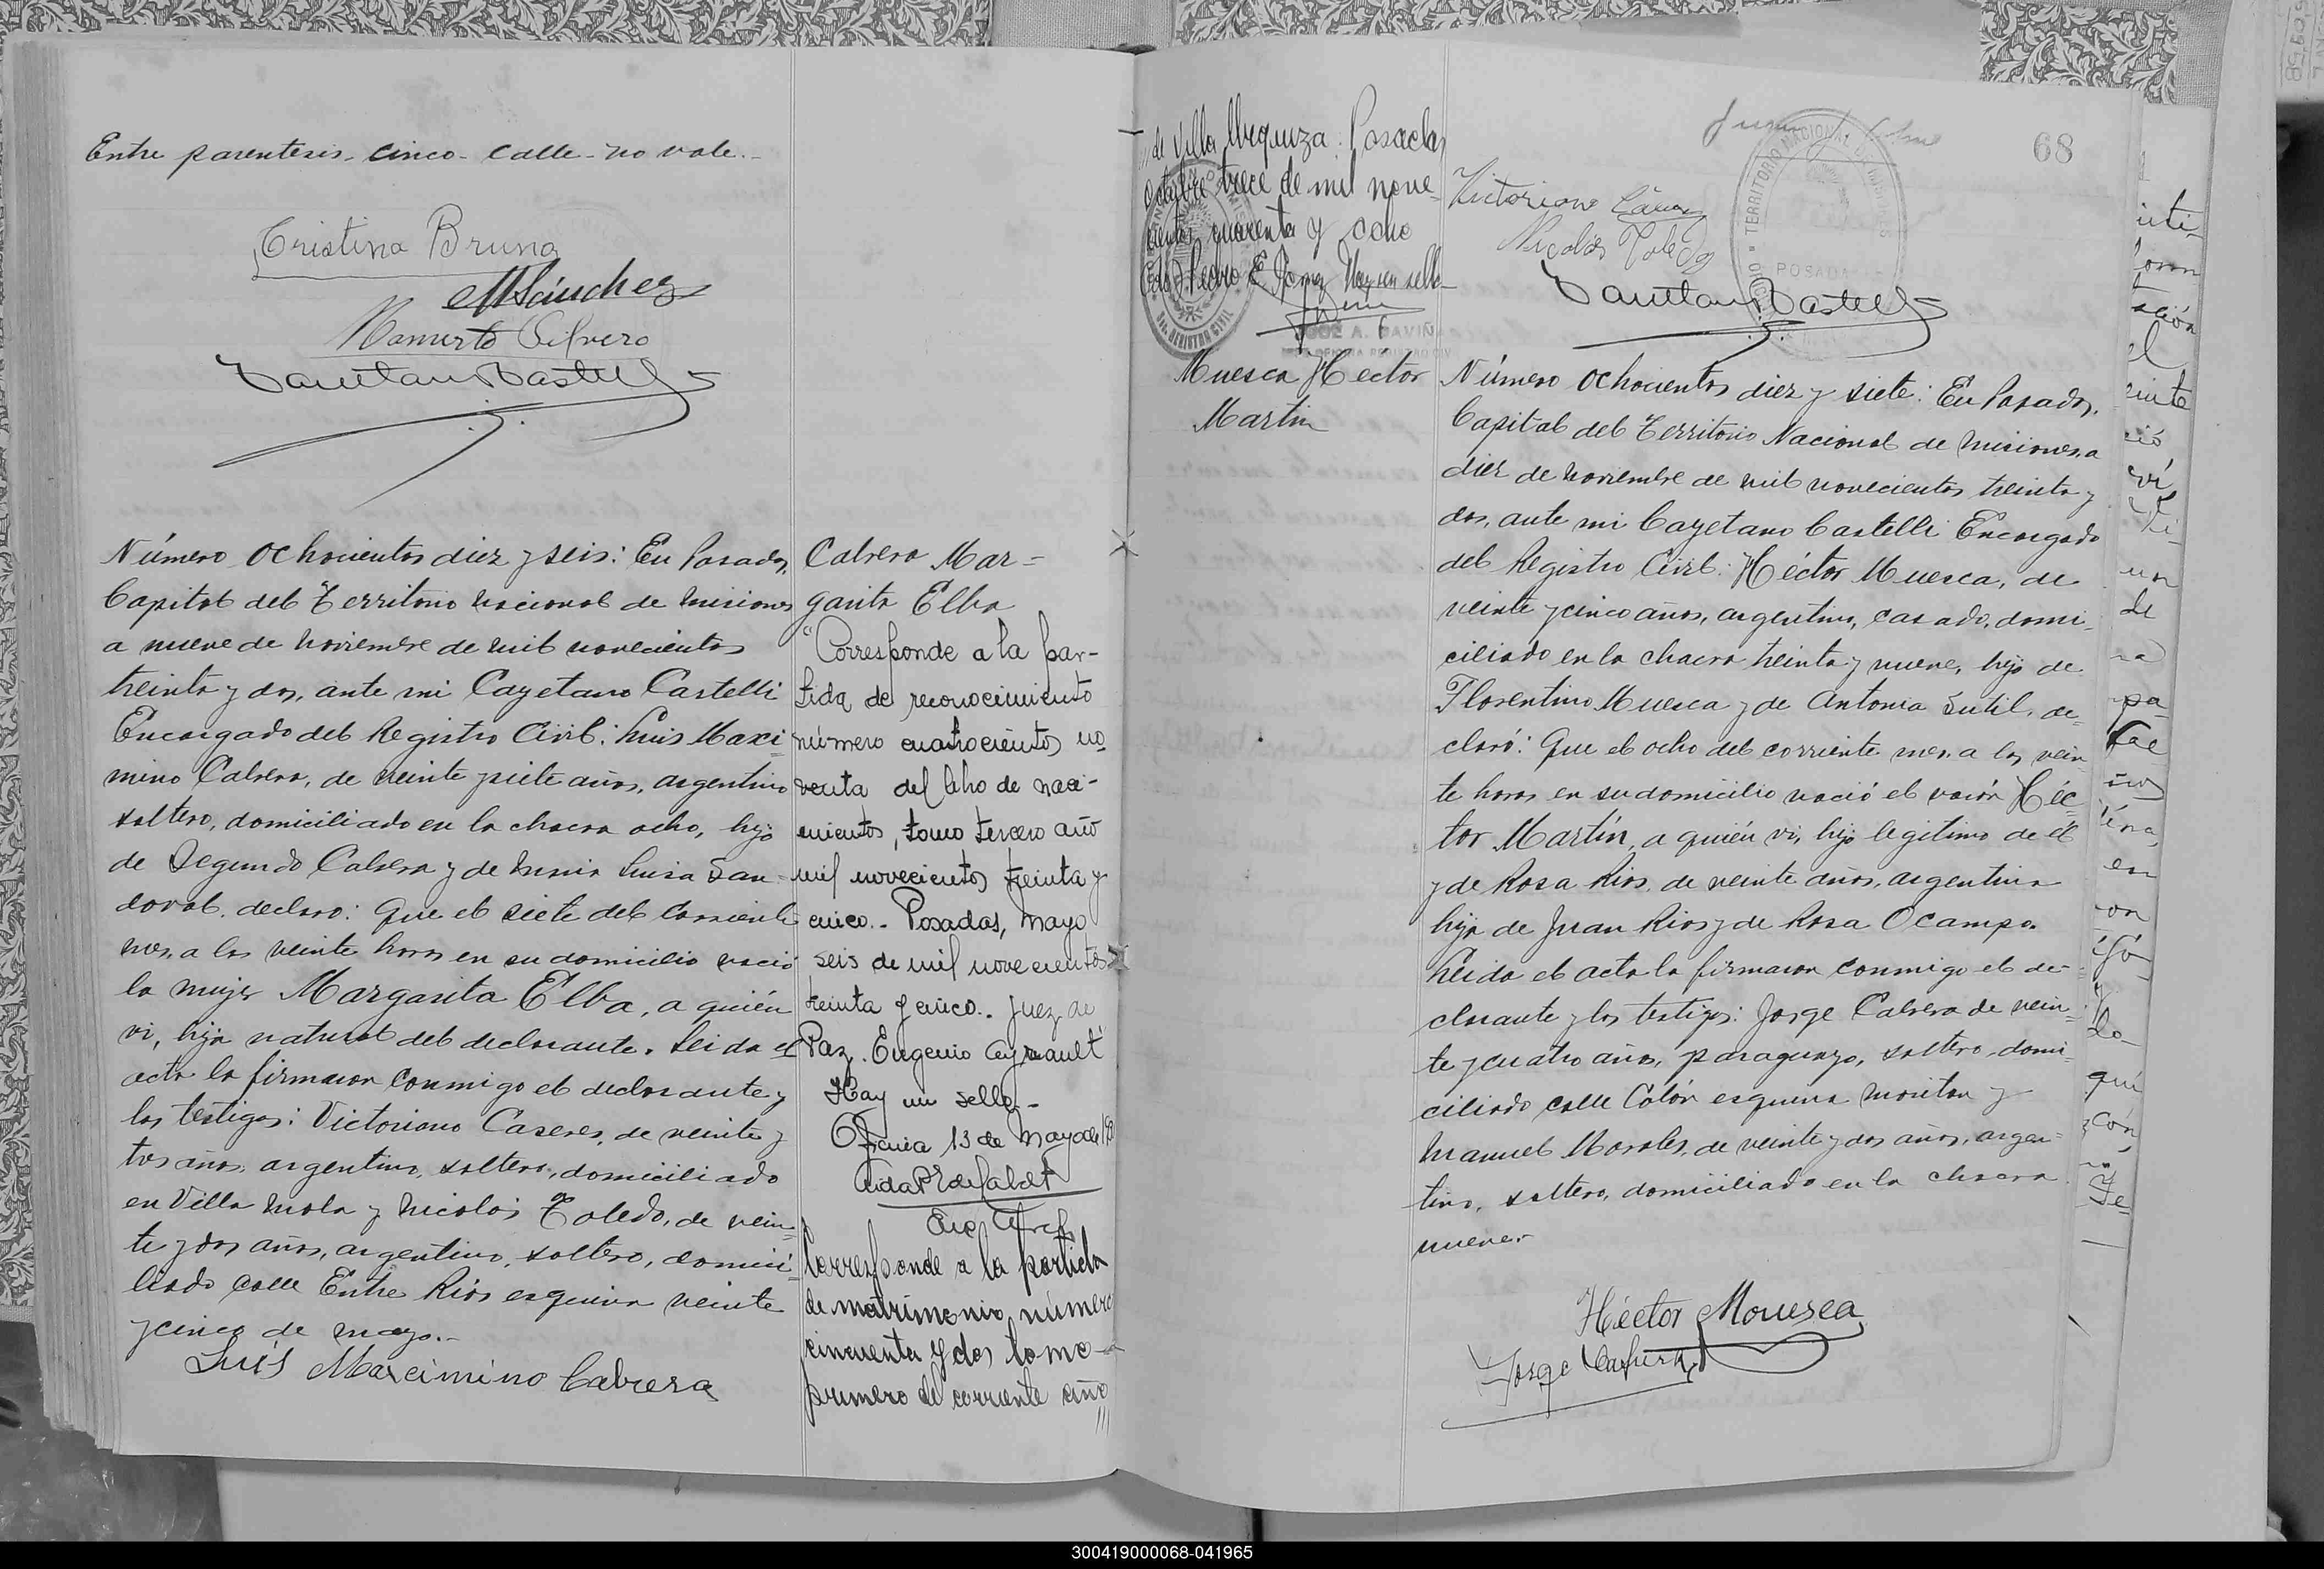 Entre parentesis - cinco - calle - no vale.-
Cristina Bruno
MSánchez
Mamerto
Cayetano Castelli
Número ochocientos diez y seis: En Posadas,
Capital del Territorio Nacional de Misiones
a nueve de noviembre de mil novecientos
treinta y dos, ante mi Cayetano Castelli
Encargado del Registro Civil: Luis Maxi=
mino Cabrera, de veinte y siete años, argentino
soltero, domiciliado en la chacra ocho, hijo
de Segundo Cabrera y de Luisa San=
doval, declaro: Que el siete del corriente
mes, a las veinte horas en su domicilio nació
la mujer Margarita Elba, a quién
vi, hija natural del declarante. Leida el
acta la firmaron conmigo el declarante y
los testigos: Victoriano Caseres, de veinte y
tres años, argentino, soltero, domiciliado
en Villa Mola y Nicolás Toledo, de vein=
te y dos años, argentino, soltero, domici=
liado calle Entre Rios esquina veinte
y cinco de mayo.-
Luis Maxcimino Cabrera
Cabrera Mar=
garita Elba
"Corresponde a la par-
tida de reconocimiento
número cuatrocientos no
venta del libro de naci-
mientos, tomo tercero año
mil novecientos treinta y
cinco.- Posadas, Mayo
seis de mil novecientos
treinta y cinco.. Juez de
Paz. Eugenio
Hay un sello.-
13 de Mayo de
Corresponde a la partida
de matrimonio número
cincuenta y dos tomo
primero del corriente año
///
///de Villa Urquiza. Posadas
Octubre trece de mil nove-
cientos cuarenta y ocho
Pedro E. Hay un sello-
REGISTRO CIVIL
JOSE A.
68
TERRITORIO NACIONAL DE MISIONES
POSADAS
Victoriano
Nicolás Toledo
Cayetano Castelli
Muesca Hector
Martin
Número ochocientos diez y siete: En Posadas,
Capital del Territorio Nacional de Misiones, a
diez de noviembre de mil novecientos treinta y
dos, ante mi Cayetano Castelli Encargado
del Registro Civil: Héctor Muesca, de
veinte y cinco años, argentino, casado, domi=
ciliado en la chacra treinta y nueve, hijo de
Florentino Muesca y de Antonia Sutil, de=
claró: Que el ocho del corriente mes, a las vein
te horas en su domicilio nació el varón Héc=
tor Martín, a quién vi, hijo legitimo de él
y de Rosa Rios, de veinte años, argentina
hija de Juan Rios y de Rosa Ocampo.
Leida el acta la firmaron conmigo el de=
clarante y los testigos: Jorge Cabrera de vein=
te y cuatro años, paraguayo, soltero, domi=
ciliado calle Colón esquina y
Manuel Morales, de veinte y dos años, argen=
tino, soltero, domiciliado en la chacra
nueve.-
Héctor Mouesca
Jorge
300419000068-041965